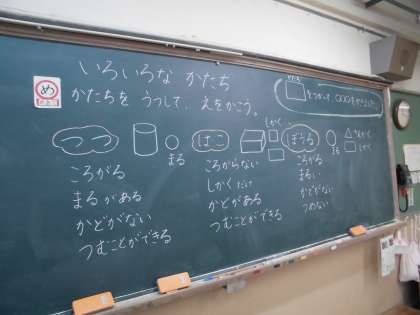 いろいろな かたち
め
かたちを うつして、えをかこう。
をつかって、〇〇〇をかきました。
つつ
まる
はこ
しかく
ぼうる
まる
しかく
ころがる
まるがある
かどがない
つむことができる
ころがらない
しかくだけ
かどがある
つむことができる
ころがる
まるい
かどがない
つめない